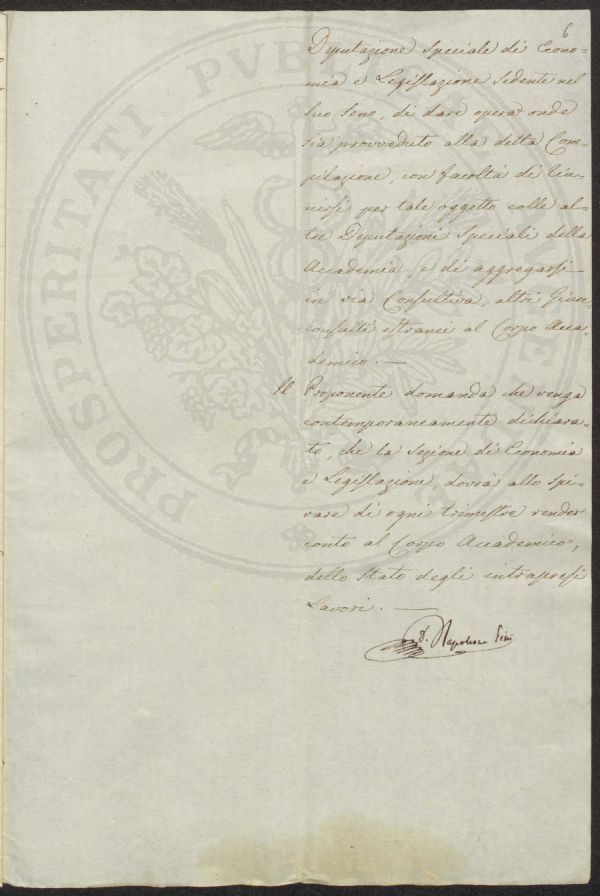 6
Deputazione Speciale di Econo=
mia e Legislazione sedente nel
suo seno, di dare opera onde
sia provveduto alla detta Com=
pilazione, con facoltà di riu=
nirsi per tale oggetto colle al=
tre Deputazioni Speciali della
Accademia, e di aggregarsi
in via Consultiva, altri Giure=
consulti estranei al Corpo Acca=
demico. —
Il Proponente domanda che venga
contemporaneamente dichiara=
to, che la Sezione di Economia
e Legislazione, dovrà allo spi=
rare di ogni trimestre render
conto al Corpo Accademico,
dello Stato degli intrapresi
Lavori. —
D. Napoleone Pini
PROSPERITATI PVBLICAE